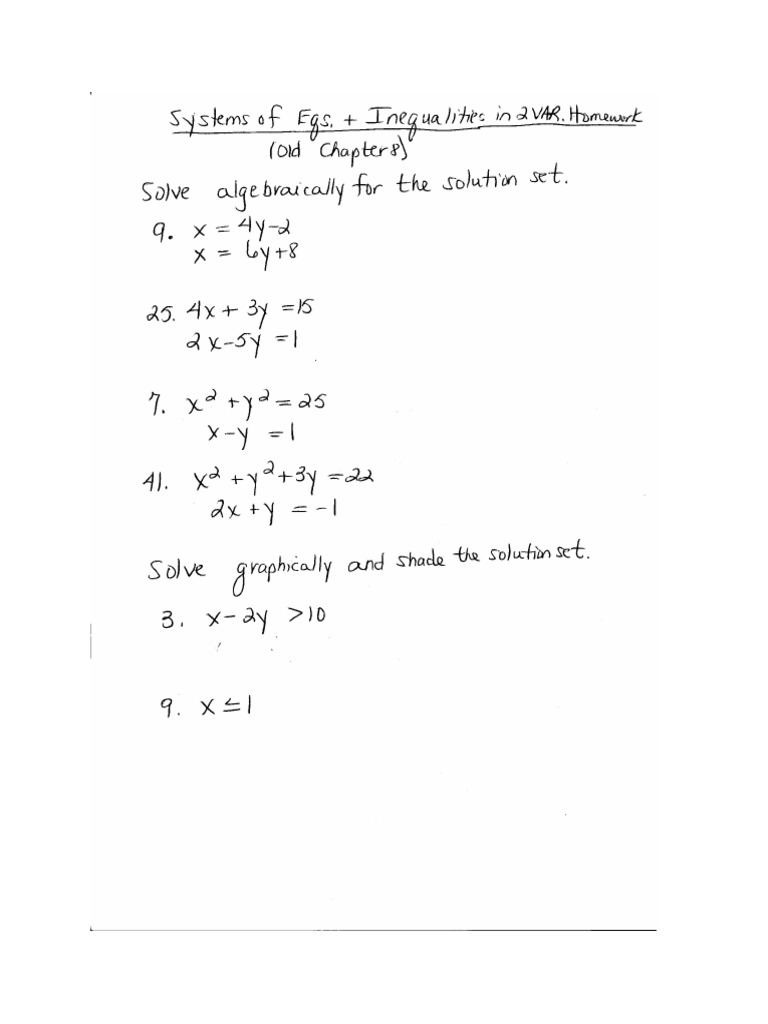 Systems of Eqs. + Inequalities in 2 VAR. Homework
(Old Chapter 8)
Solve algebraically for the solution set.
9. x = 4y-2
x = 6y+8
25. 4x + 3y = 15
2x-5y = 1
7. x² + y² = 25
x-y = 1
41. x² + y² + 3y = 22
2x + y = -1
Solve graphically and shade the solution set.
3. x - 2y > 10
9. x ≤ 1